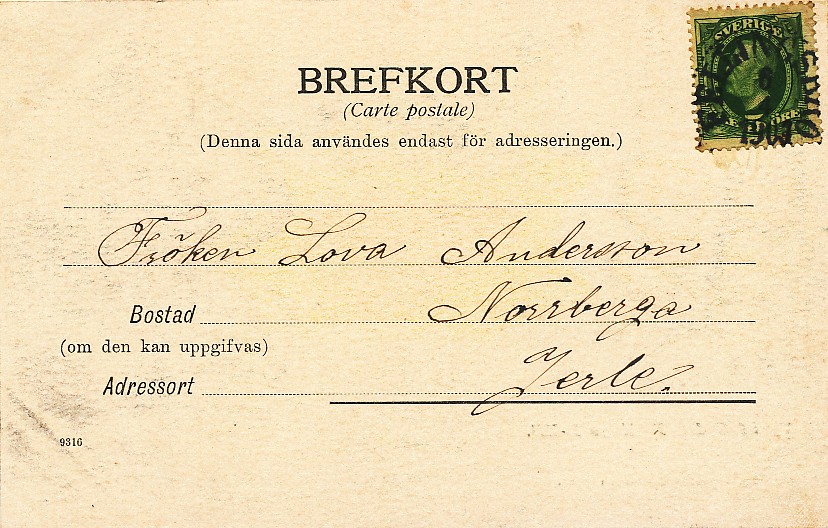 BREFKORT
(Carte postale)
(Denna sida användes endast för adresseringen.)
SVERIGE
ÖRE
6
1907
Fröken Lova Andersson
Bostad Norrberga
(om den kan uppgifvas)
Adressort Jerle.
9316